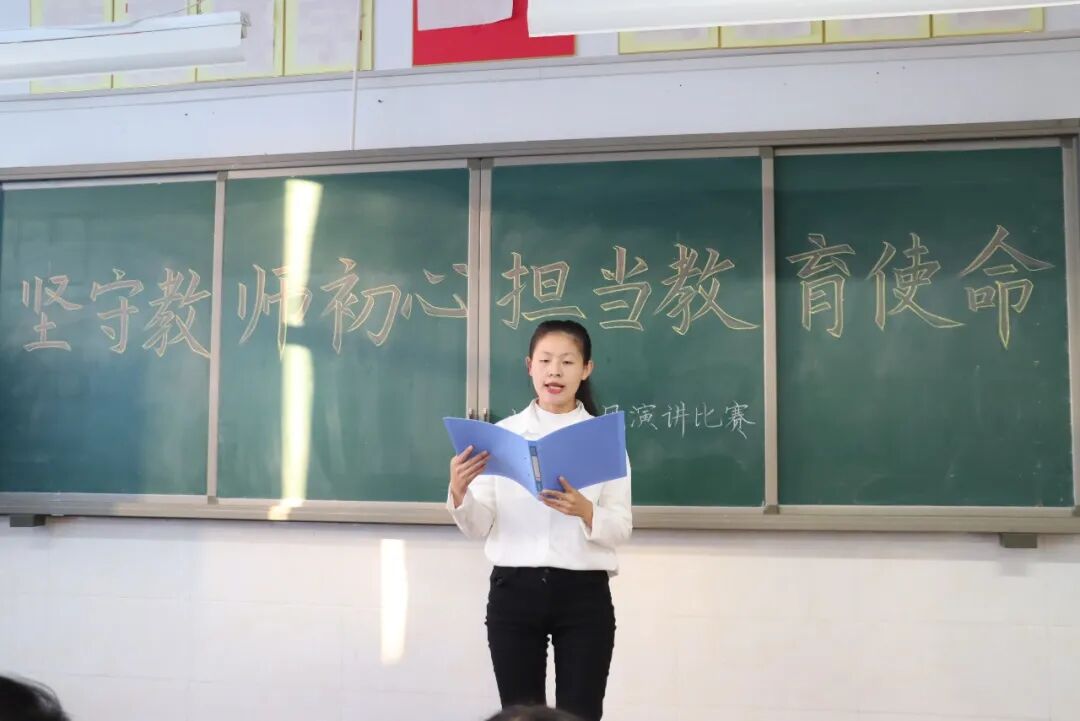 坚守教师初心担当教育使命
演讲比赛